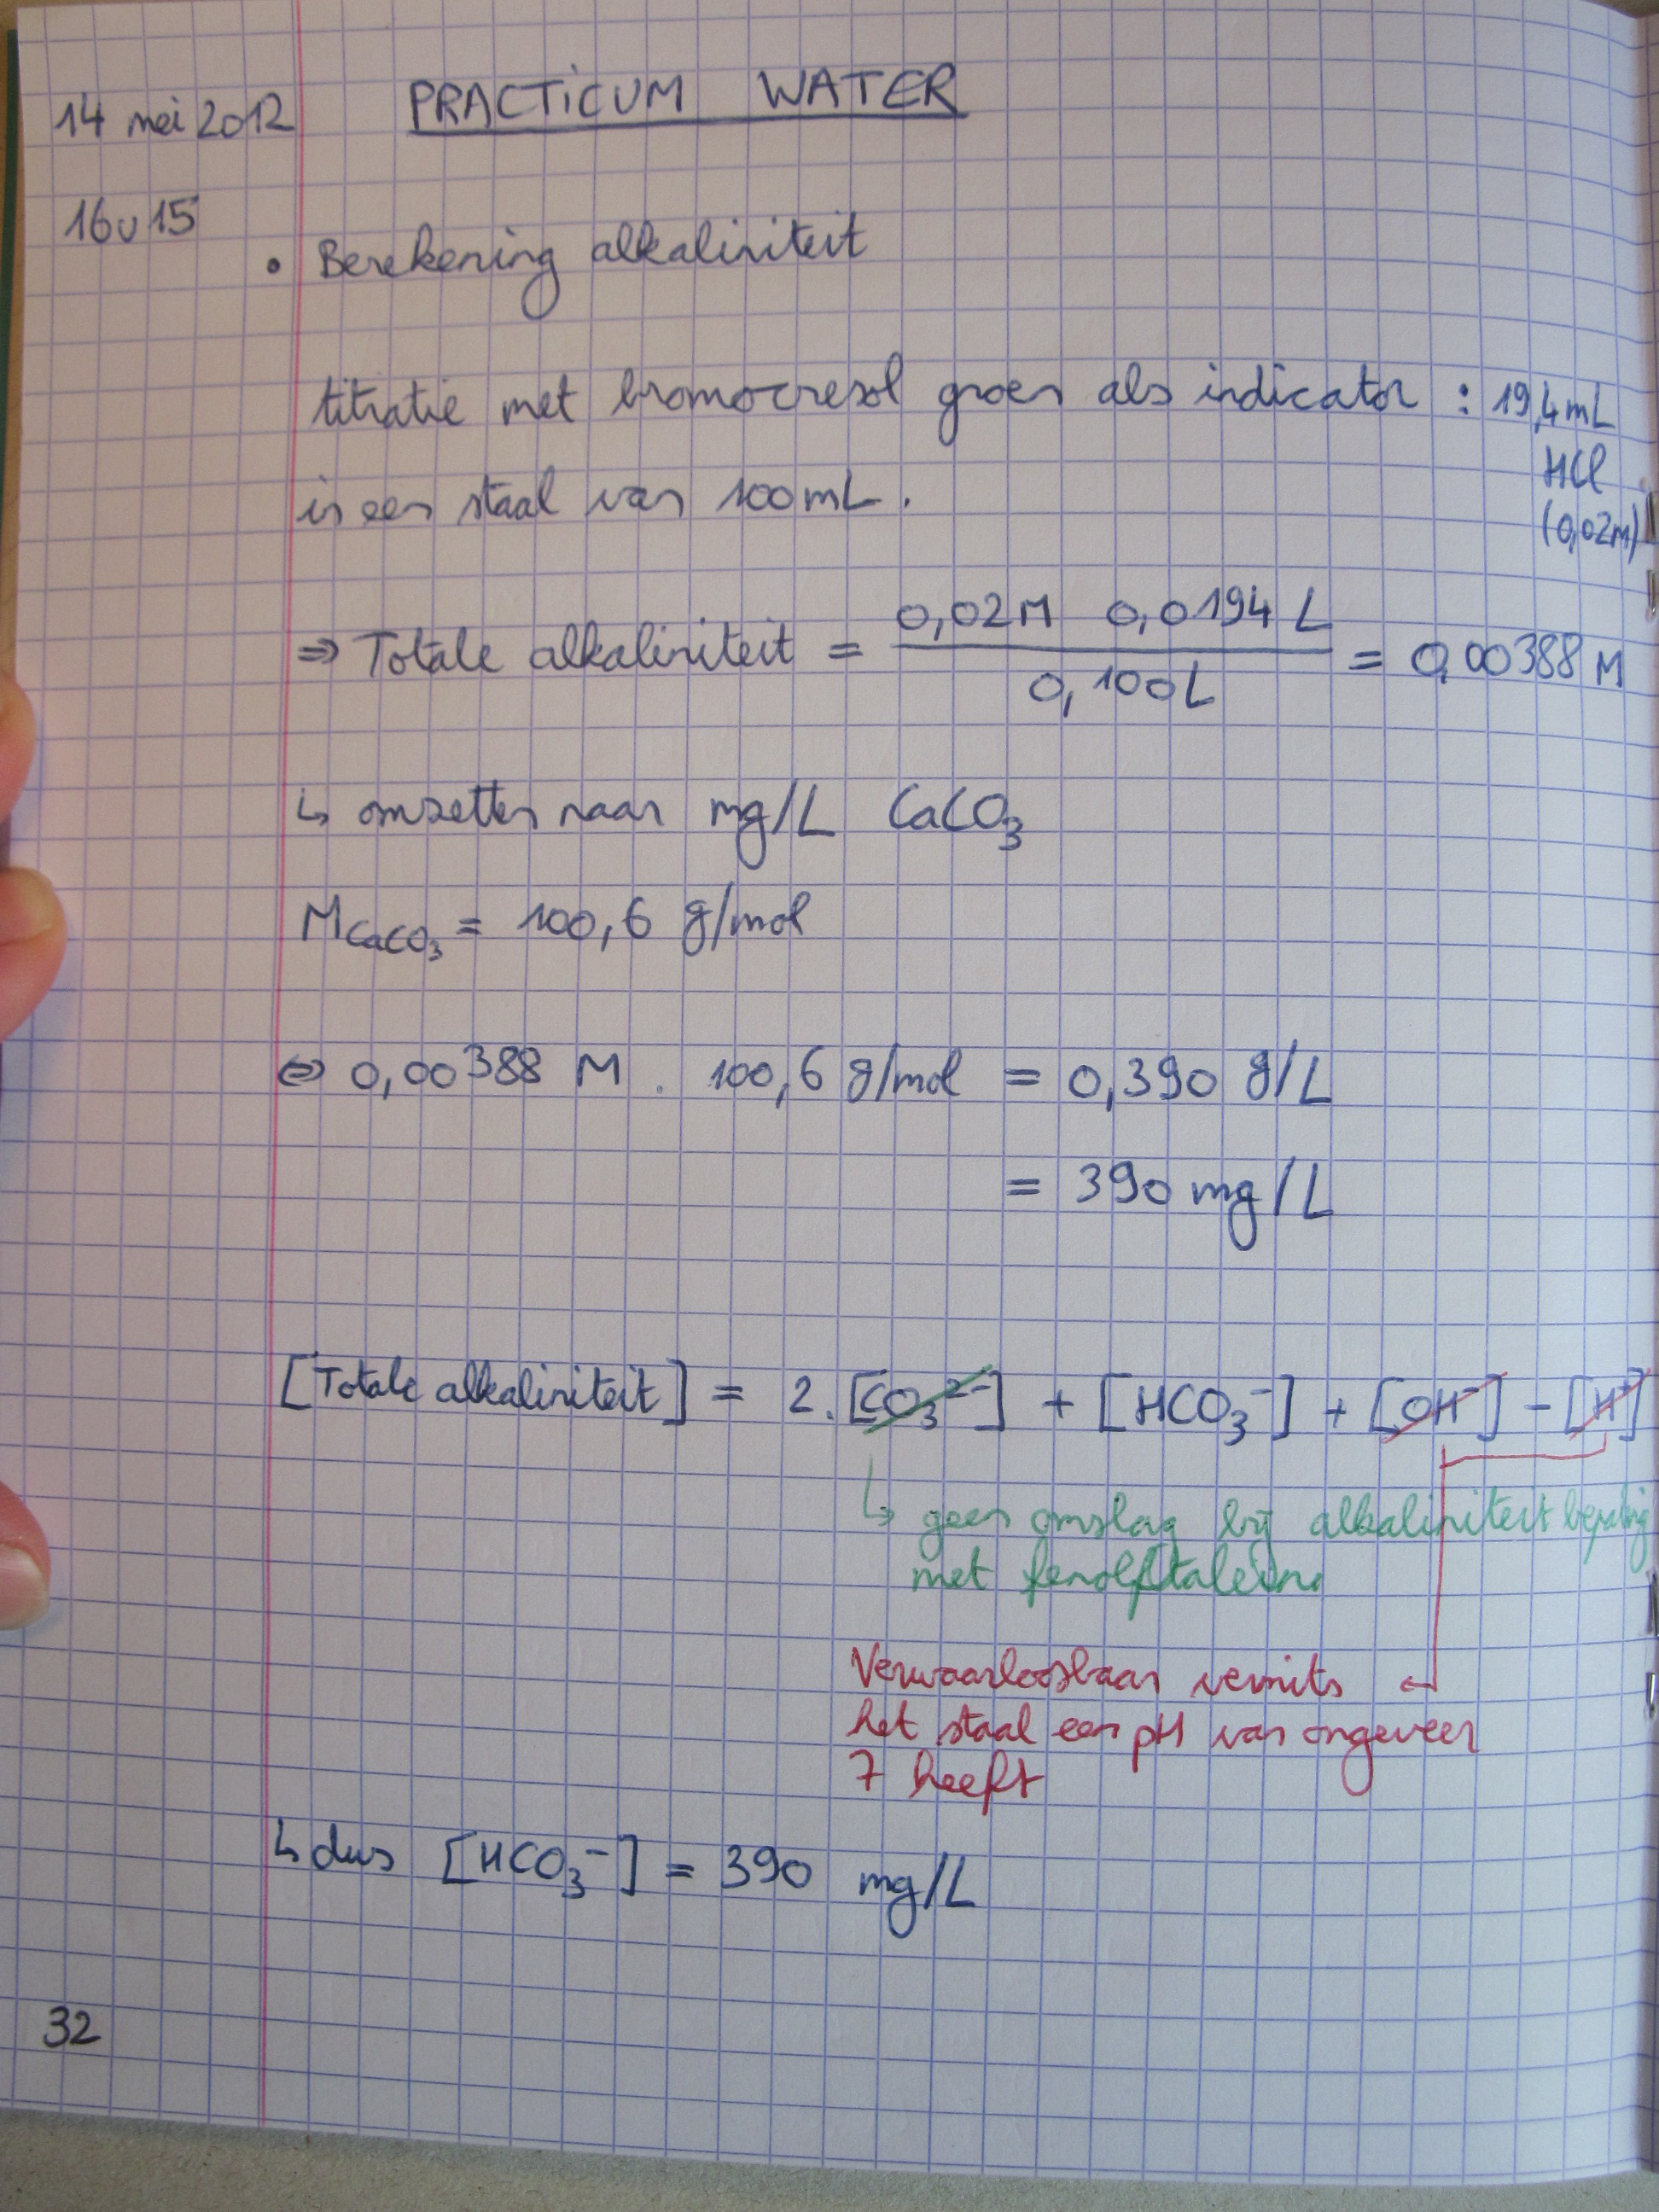 14 mei 2012 PRACTICUM WATER
16u15
• Berekening alkaliniteit
titratie met bromocresol groen als indicator : 19,4 mL
HCl
(0,02M)
in een staal van 100 mL.
⇒ Totale alkaliniteit = 0,02M 0,0194 L / 0,100L = 0,00388 M
↳ omzetten naar mg/L CaCO₃
M CaCO₃ = 100,6 g/mol
⇔ 0,00388 M . 100,6 g/mol = 0,390 g/L
= 390 mg/L
[Totale alkaliniteit] = 2. [CO₃²⁻] + [HCO₃⁻] + [OH⁻] - [H⁺]
↳ geen omslag bij alkaliniteitsbepaling
met fenolftaleïne
Verwaarloosbaar vermits ←
het staal een pH van ongeveer
7 heeft
↳ dus [HCO₃⁻] = 390 mg/L
32